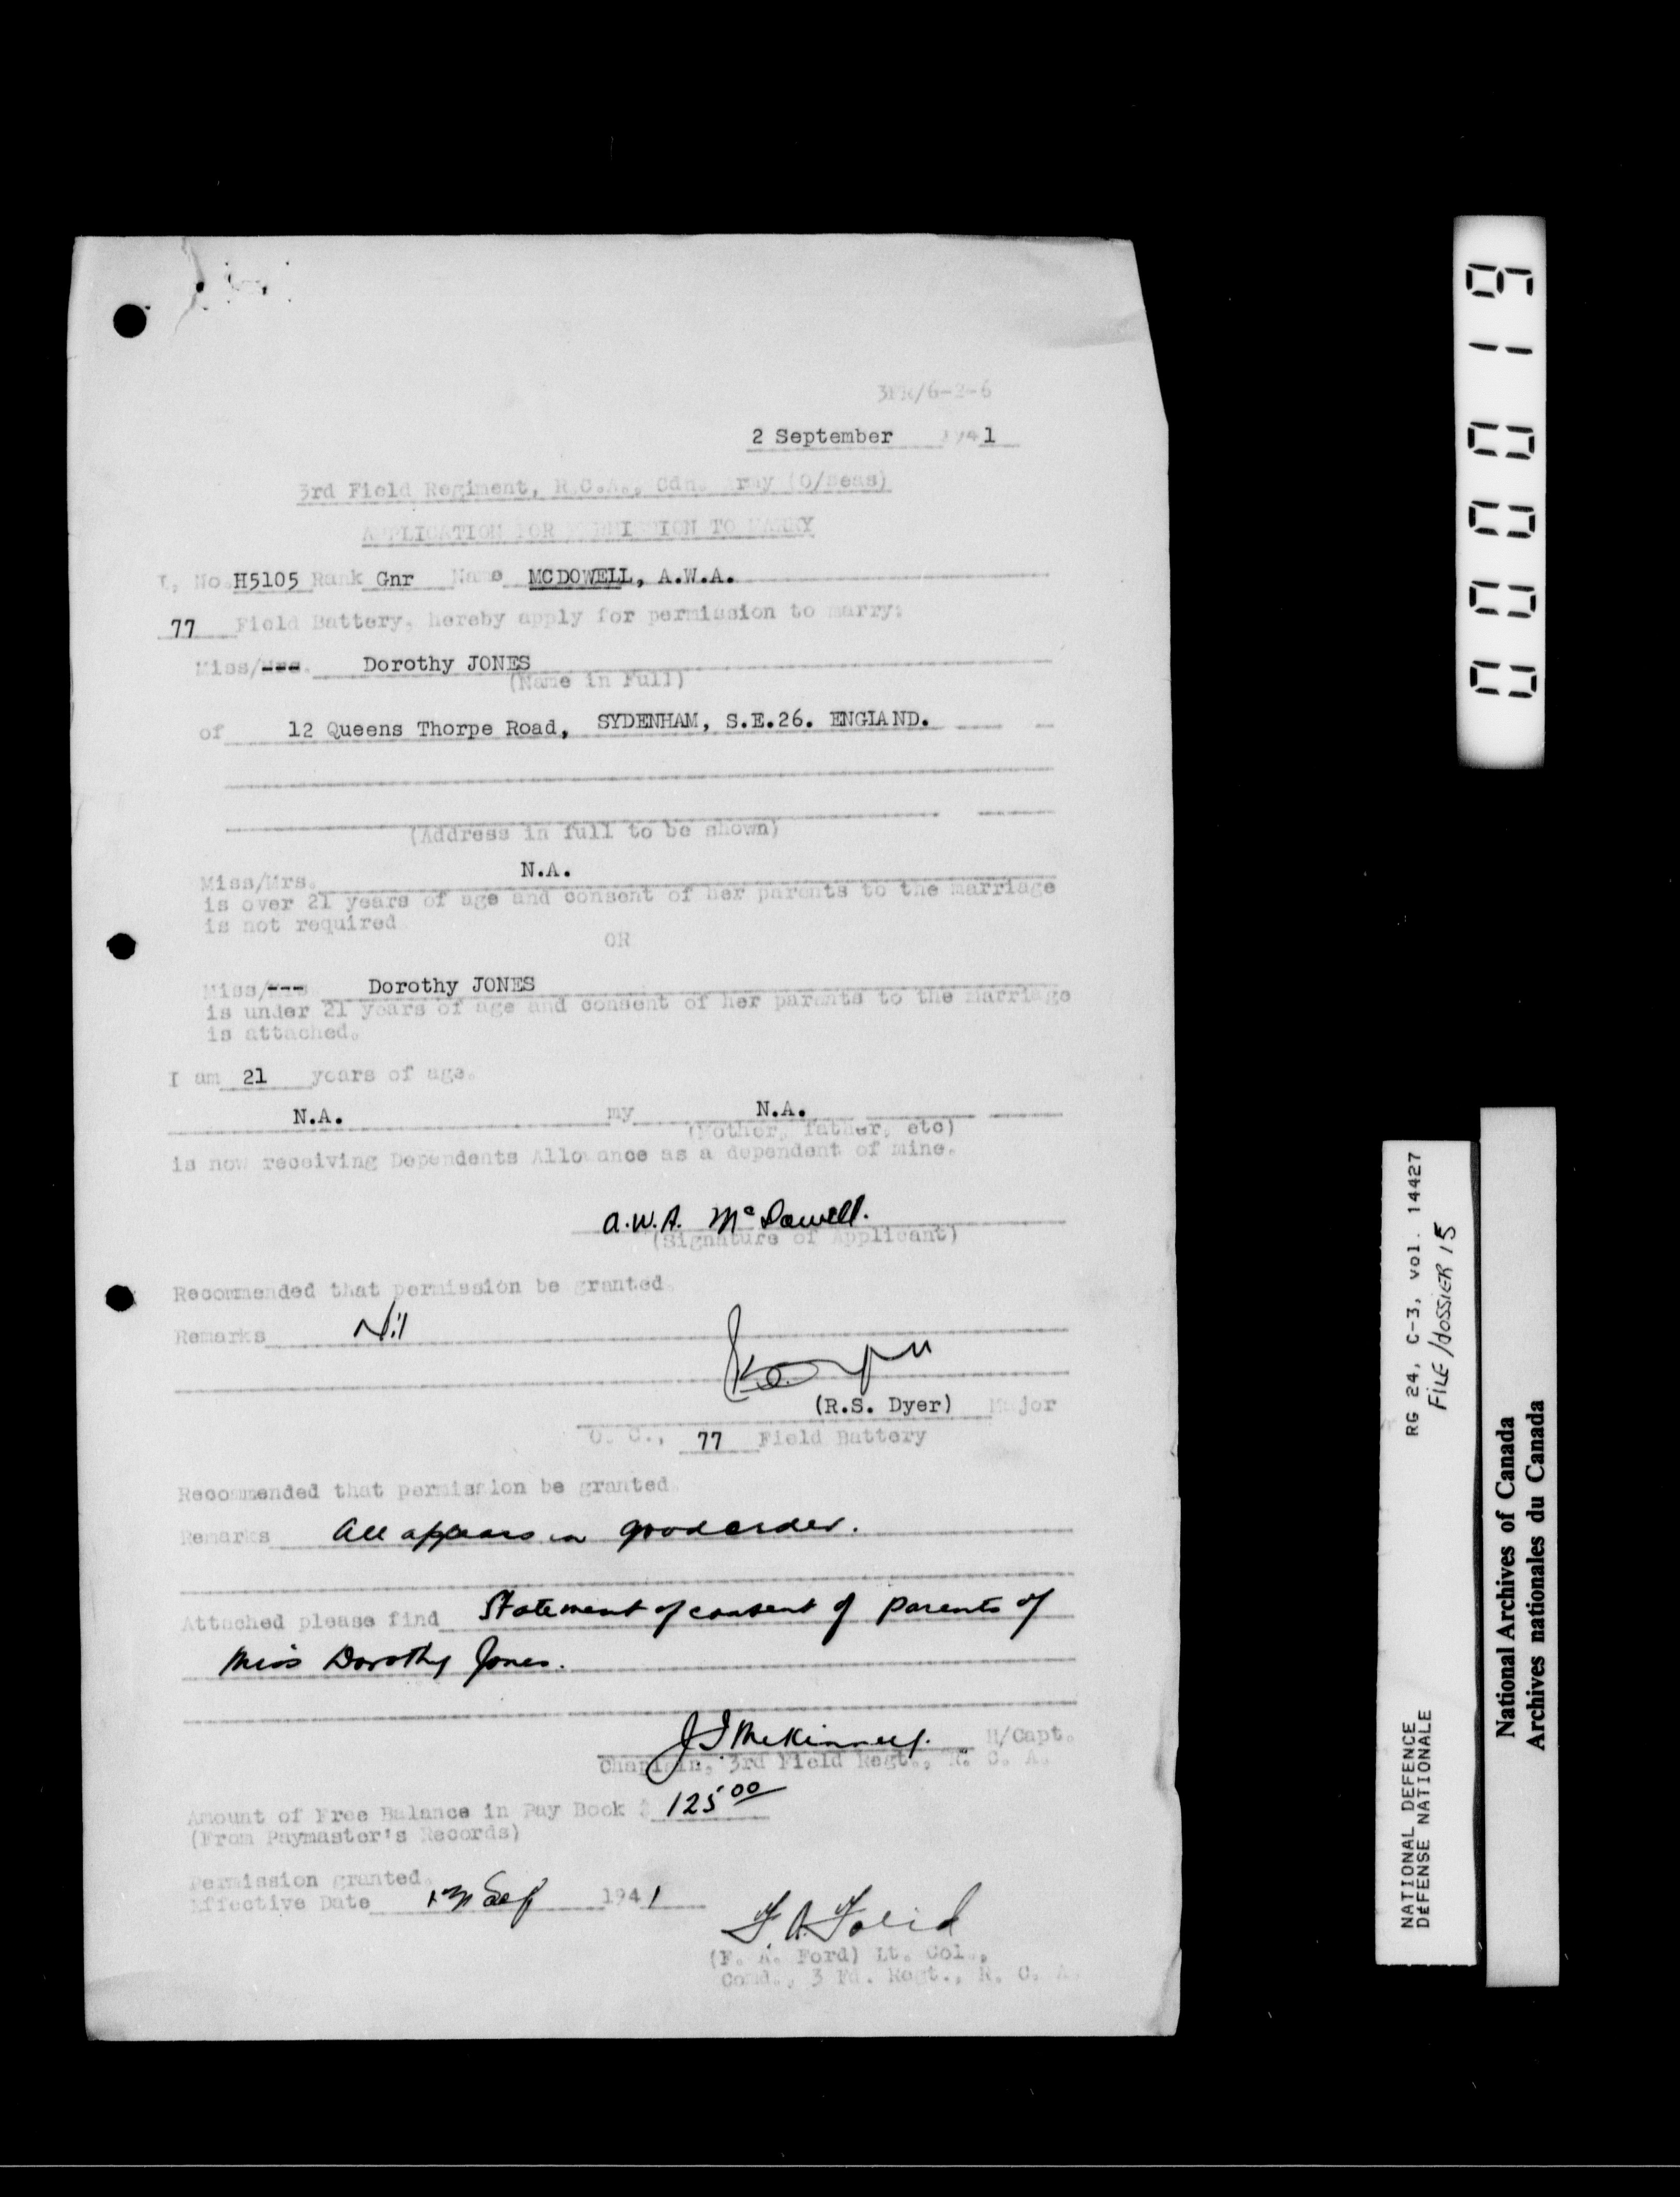 3FR/6-2-6
2 September 1941
3rd Field Regiment, R.C.A., Cdn. Army (O/Seas)
APPLICATION FOR PERMISSION TO MARRY
I, No. H5105 Rank Gnr Name MCDOWELL, A.W.A.
77 Field Battery, hereby apply for permission to marry:
Miss/---. Dorothy JONES
(Name in Full)
of 12 Queens Thorpe Road, SYDENHAM, S.E.26. ENGLAND.
(Address in full to be shown)
Miss/Mrs. N.A.
is over 21 years of age and consent of her parents to the marriage
is not required
OR
Miss/--- Dorothy JONES
is under 21 years of age and consent of her parents to the marriage
is attached.
I am 21 years of age.
N.A. my N.A.
(Mother, father, etc)
is now receiving Dependents Allowance as a dependent of mine.
A.W.A. McDowell.
(Signature of Applicant)
Recommended that permission be granted.
Remarks Nil
(R.S. Dyer) Major
O. C., 77 Field Battery
Recommended that permission be granted.
Remarks All appears in good order.
Attached please find Statement of consent of parents of
Miss Dorothy Jones.
H/Capt.
Chaplain, 3rd Field Regt., R. C. A.
Amount of Free Balance in Pay Book $ 125 00
(From Paymaster's Records)
Permission granted.
Effective Date Sep 1941
(F. A. Ford) Lt. Col.,
Comd., 3 Fd. Regt., R. C. A.
000019
RG 24, C-3, vol. 14427
FILE/dossier 15
NATIONAL DEFENCE
DÉFENSE NATIONALE
National Archives of Canada
Archives nationales du Canada